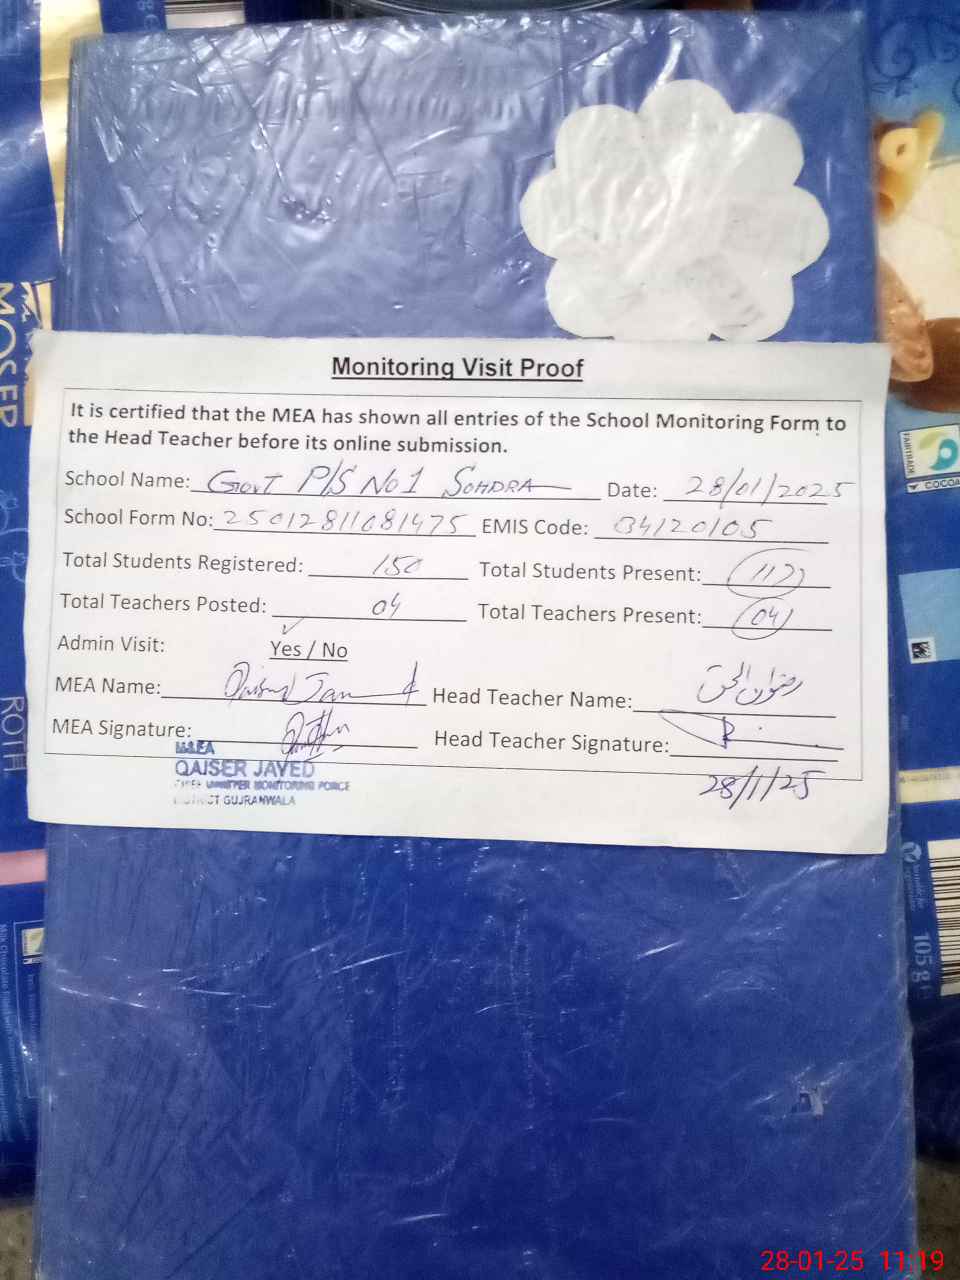 Monitoring Visit Proof
It is certified that the MEA has shown all entries of the School Monitoring Form to
the Head Teacher before its online submission.
School Name: Govt P/S No 1 SOHDRA Date: 28/01/2025
School Form No: 25012811081475 EMIS Code: 34120105
Total Students Registered: 150 Total Students Present: 117
Total Teachers Posted: 04 Total Teachers Present: 04
Admin Visit: Yes / No
MEA Name: Qaiser Javed Head Teacher Name: رضوان الحق
MEA Signature: Head Teacher Signature:
28/1/25
M&EA
QAISER JAVED
CHIEF MINISTER MONITORING FORCE
DISTRICT GUJRANWALA
MOSER
ROTH
FAIRTRADE
COCOA
105 g
28-01-25 11:19